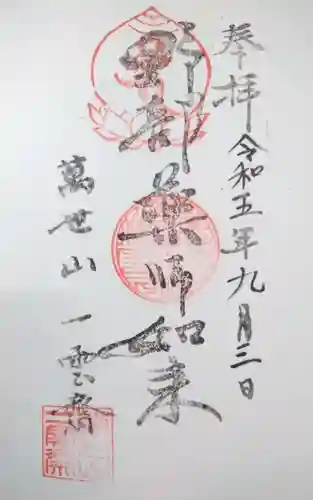 奉拝 令和五年九月三日
野部薬師如来
萬世山 一雲齋